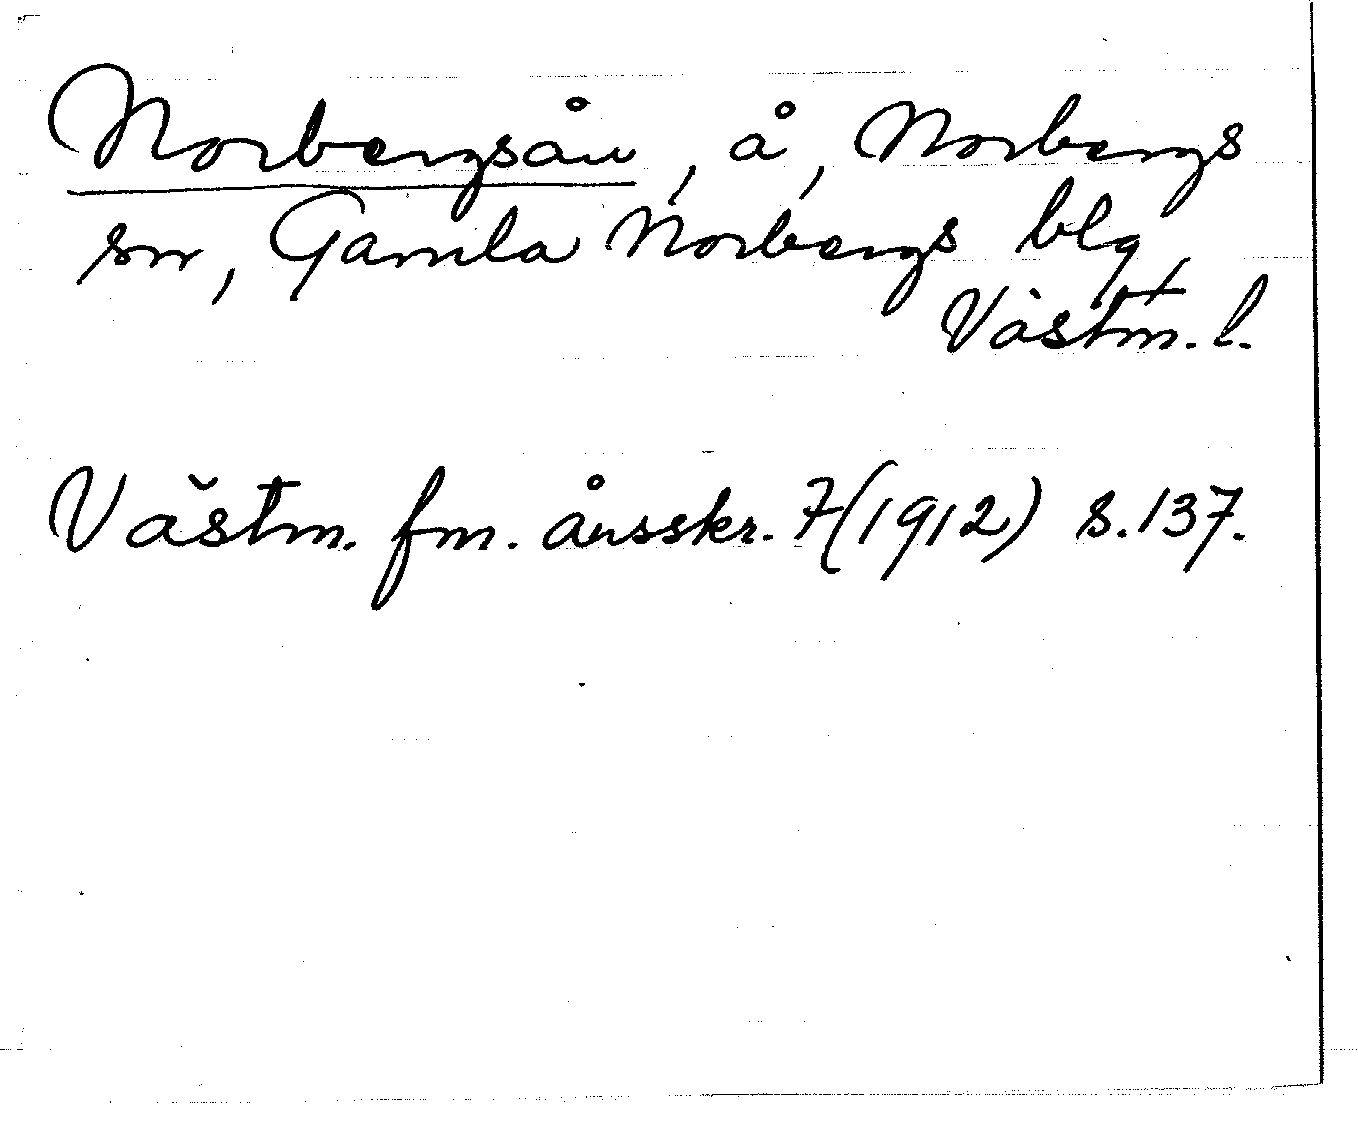 Norbergsån, å, Norbergs
sn, Gamla Norbergs blg
Västm. l.
Västm. fm. årsskr. 7(1912) s. 137.